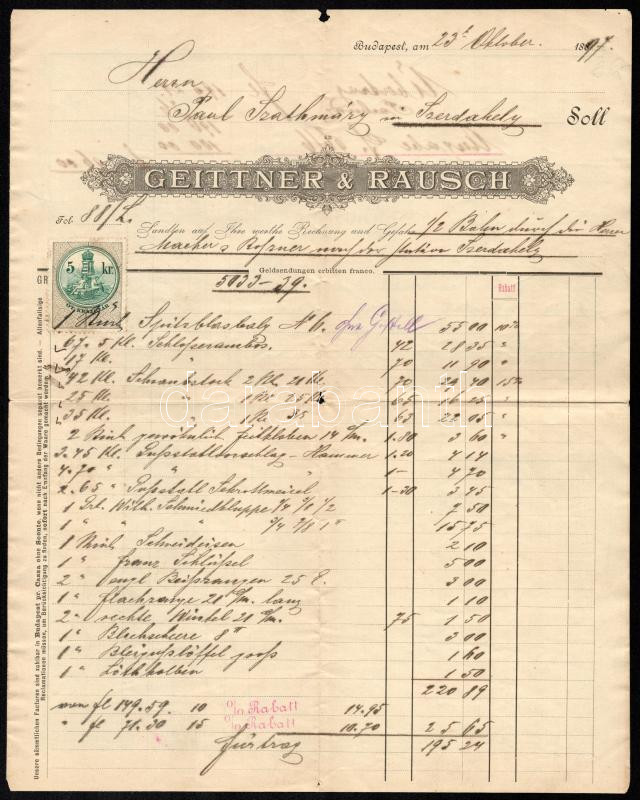 Budapest, am 23t Oktober. 1897.
Herrn
Paul Szathmáry in Szerdahely
Soll
GEITTNER & RAUSCH
Fol. 88/L.
Sandten auf Ihre werthe Rechnung und Gefahr p/ Bahn durch die Herren
nach der Station Szerdahely
Geldsendungen erbitten franco.
5033-39.
Rabatt
5 kr.
1 Stück Spitzblasbalg N 6. ohne Gestell 55 00 10%
67.5 Kl. Schlosserambos 42 28 35 "
17 Kl. 70 11 90 "
42 Kl. Schraubstock 2 Kl. 21 Kl. 70 29 40 15%
25 Kl. " 1 Kl. 25 Kl. 65 16 25 "
35 Kl. " 1 Kl. 35 63 22 05 "
2 Stück 14 1.80 3 60 "
3.45 Kl. Gußstahlvorschlag-Hammer 1.20 4 14
4.70 " " " 1- 4 70
2.65 " Gußstahl Schrottmeisel 1-30 3 45
1 Orl. Wilh. Schmiedkluppe 7 50
1 " " " 15 75
1 Stück Schneideisen 2 10
1 " franz Schlüßel 5 00
2 " engl Beißzangen 25 3 00
1 " flachzange 20 lang 1 10
2 " rechte Winkel 21 75 1 50
1 " Blechscheere 8" 3 00
1 " Bleigußlöffel groß 1 60
1 " Löthkolben 1 50
220 89
von fl 149.59. 10 % Rabatt 14.95
" fl 71.30 15 % Rabatt 10.70 25 65
Fürtrag 195 24
Unsere sämmtlichen Facturen sind zahlbar in Budapest pr. Cassa ohne Sconto, wenn nicht andere Bedingungen separat bemerkt sind. — Allenfallsige
Reclamationen müssen, um Berücksichtigung zu finden, sofort nach Empfang der Waare gemacht werden.
darabanth